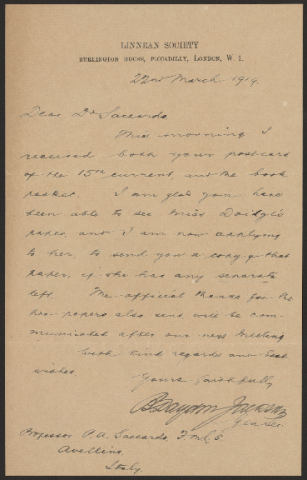 LINNEAN SOCIETY
BURLINGTON HOUSE, PICCADILLY, LONDON, W. 1.
22nd March 1919.
Dear Dr Saccardo
This morning I
received both your postcard
of the 15th current, and the book
packet. I am glad you have
been able to see Miss Doidge's
paper, and I am now applying
to her, to send you a copy of that
paper, if she has any separate
left. The official thanks for the
two papers also send will be com-
municated after our next Meeting
With kind regards and best
wishes
Yours faithfully
B Daydon Jackson
Professor P. A. Saccardo, F.M.L.S.
Avellino,
Italy